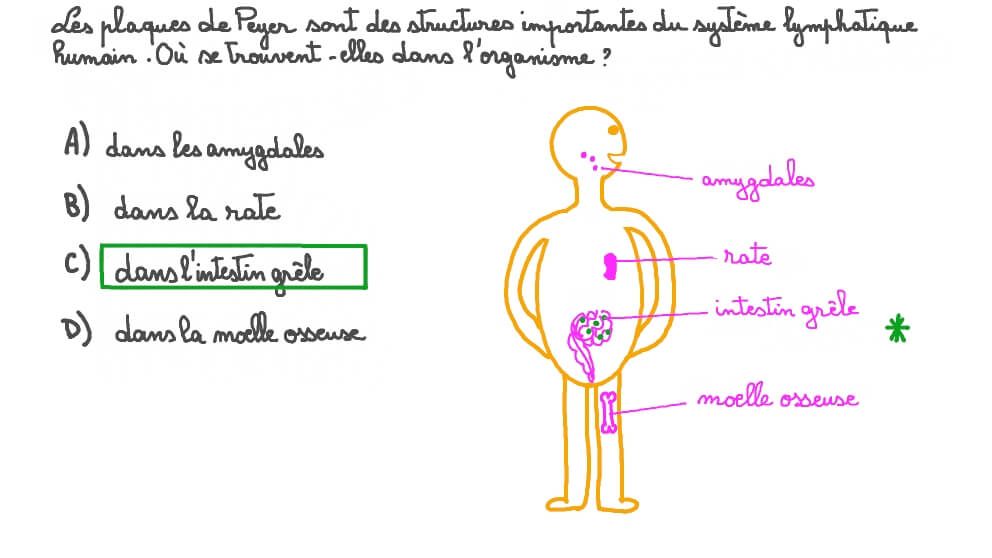 Les plaques de Peyer sont des structures importantes du système lymphatique
humain. Où se trouvent-elles dans l'organisme ?
A) dans les amygdales
B) dans la rate
C) dans l'intestin grêle
D) dans la moelle osseuse
amygdales
rate
intestin grêle
moelle osseuse